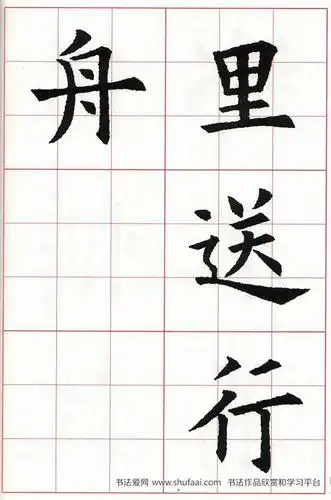 里送行
舟
书法爱网 www.shufaai.com 书法作品欣赏和学习平台